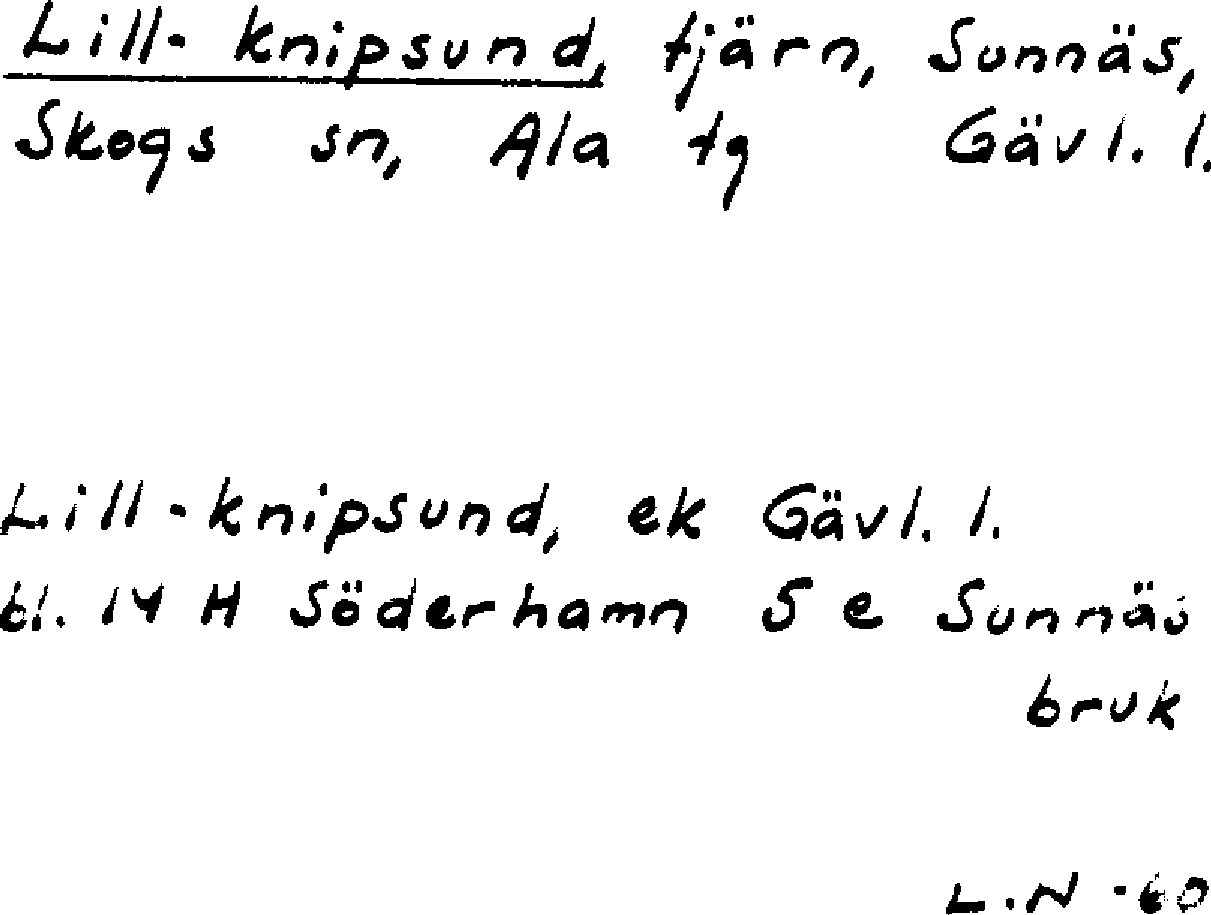 Lill-knipsund, tjärn, Sunnäs,
Skogs sn, Ala tg Gävl. l.
Lill-knipsund, ek Gävl. l.
bl. 14 H Söderhamn 5 e Sunnäs
bruk
L.N -60